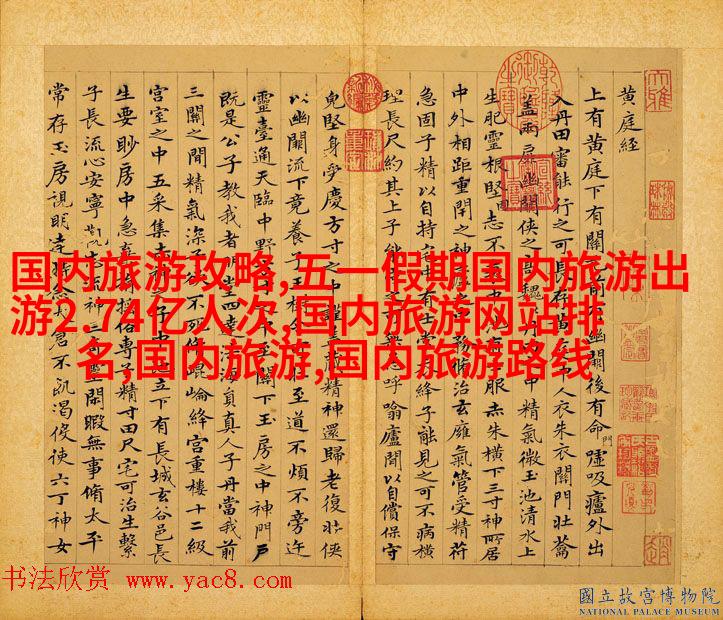 黄庭経
上有黄庭下有關前幽關後有命門嘘吸廬外出
入丹田審能行之可長存黄中人衣朱衣關門壯蘥
盖兩扉幽關俠之巍丹之中精氣微玉池清水上
生肥靈根堅固志不衰中有士服赤朱橫下三寸神所居
中外相距重閉之神廬之中務脩治玄廱氣管受精符
急固子精以自持宅中有士常絳子能見之可不病橫
理長尺約其上子能之可無呼噏廬間以自償保守
兌堅身受慶方寸之中謹盖藏精神還歸老復壯俠
以幽關流下竟養子玉樹至道不煩不旁迕
靈臺通天臨中野方關下玉房之中神門戶
既是公子教我者明堂四達法海員真人子丹當我前
三關之間精氣深子欲不死脩崐崘絳宮重樓十二級
宮室之中五采集赤神子中池立下有長城玄谷邑長
生要眇房中急棄捐俗專子精寸田尺宅可治生繫
子長流心安寧觀志流神三奇靈閒暇無事脩太平
常存玉房視明達時念大倉不飢渴役使六丁神女
国内旅游攻略,五一假期国内旅游出
游2.74亿人次,国内旅游网站排
名,国内旅游,国内旅游路线
书法欣赏 www.yac8.com
國立故宮博物院
NATIONAL PALACE MUSEUM